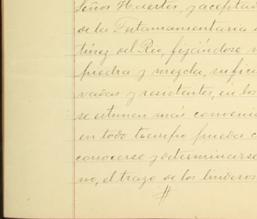 Señor Huerta, y aceptad
de la Testamentaria
tínez del Rio, fijándose
piedra y mezcla, sufic
vadas y resistentes, en los
se estimen más convenie
en todo tiempo pueda c
conocerse y determinarse
no, el trazo de los linderos